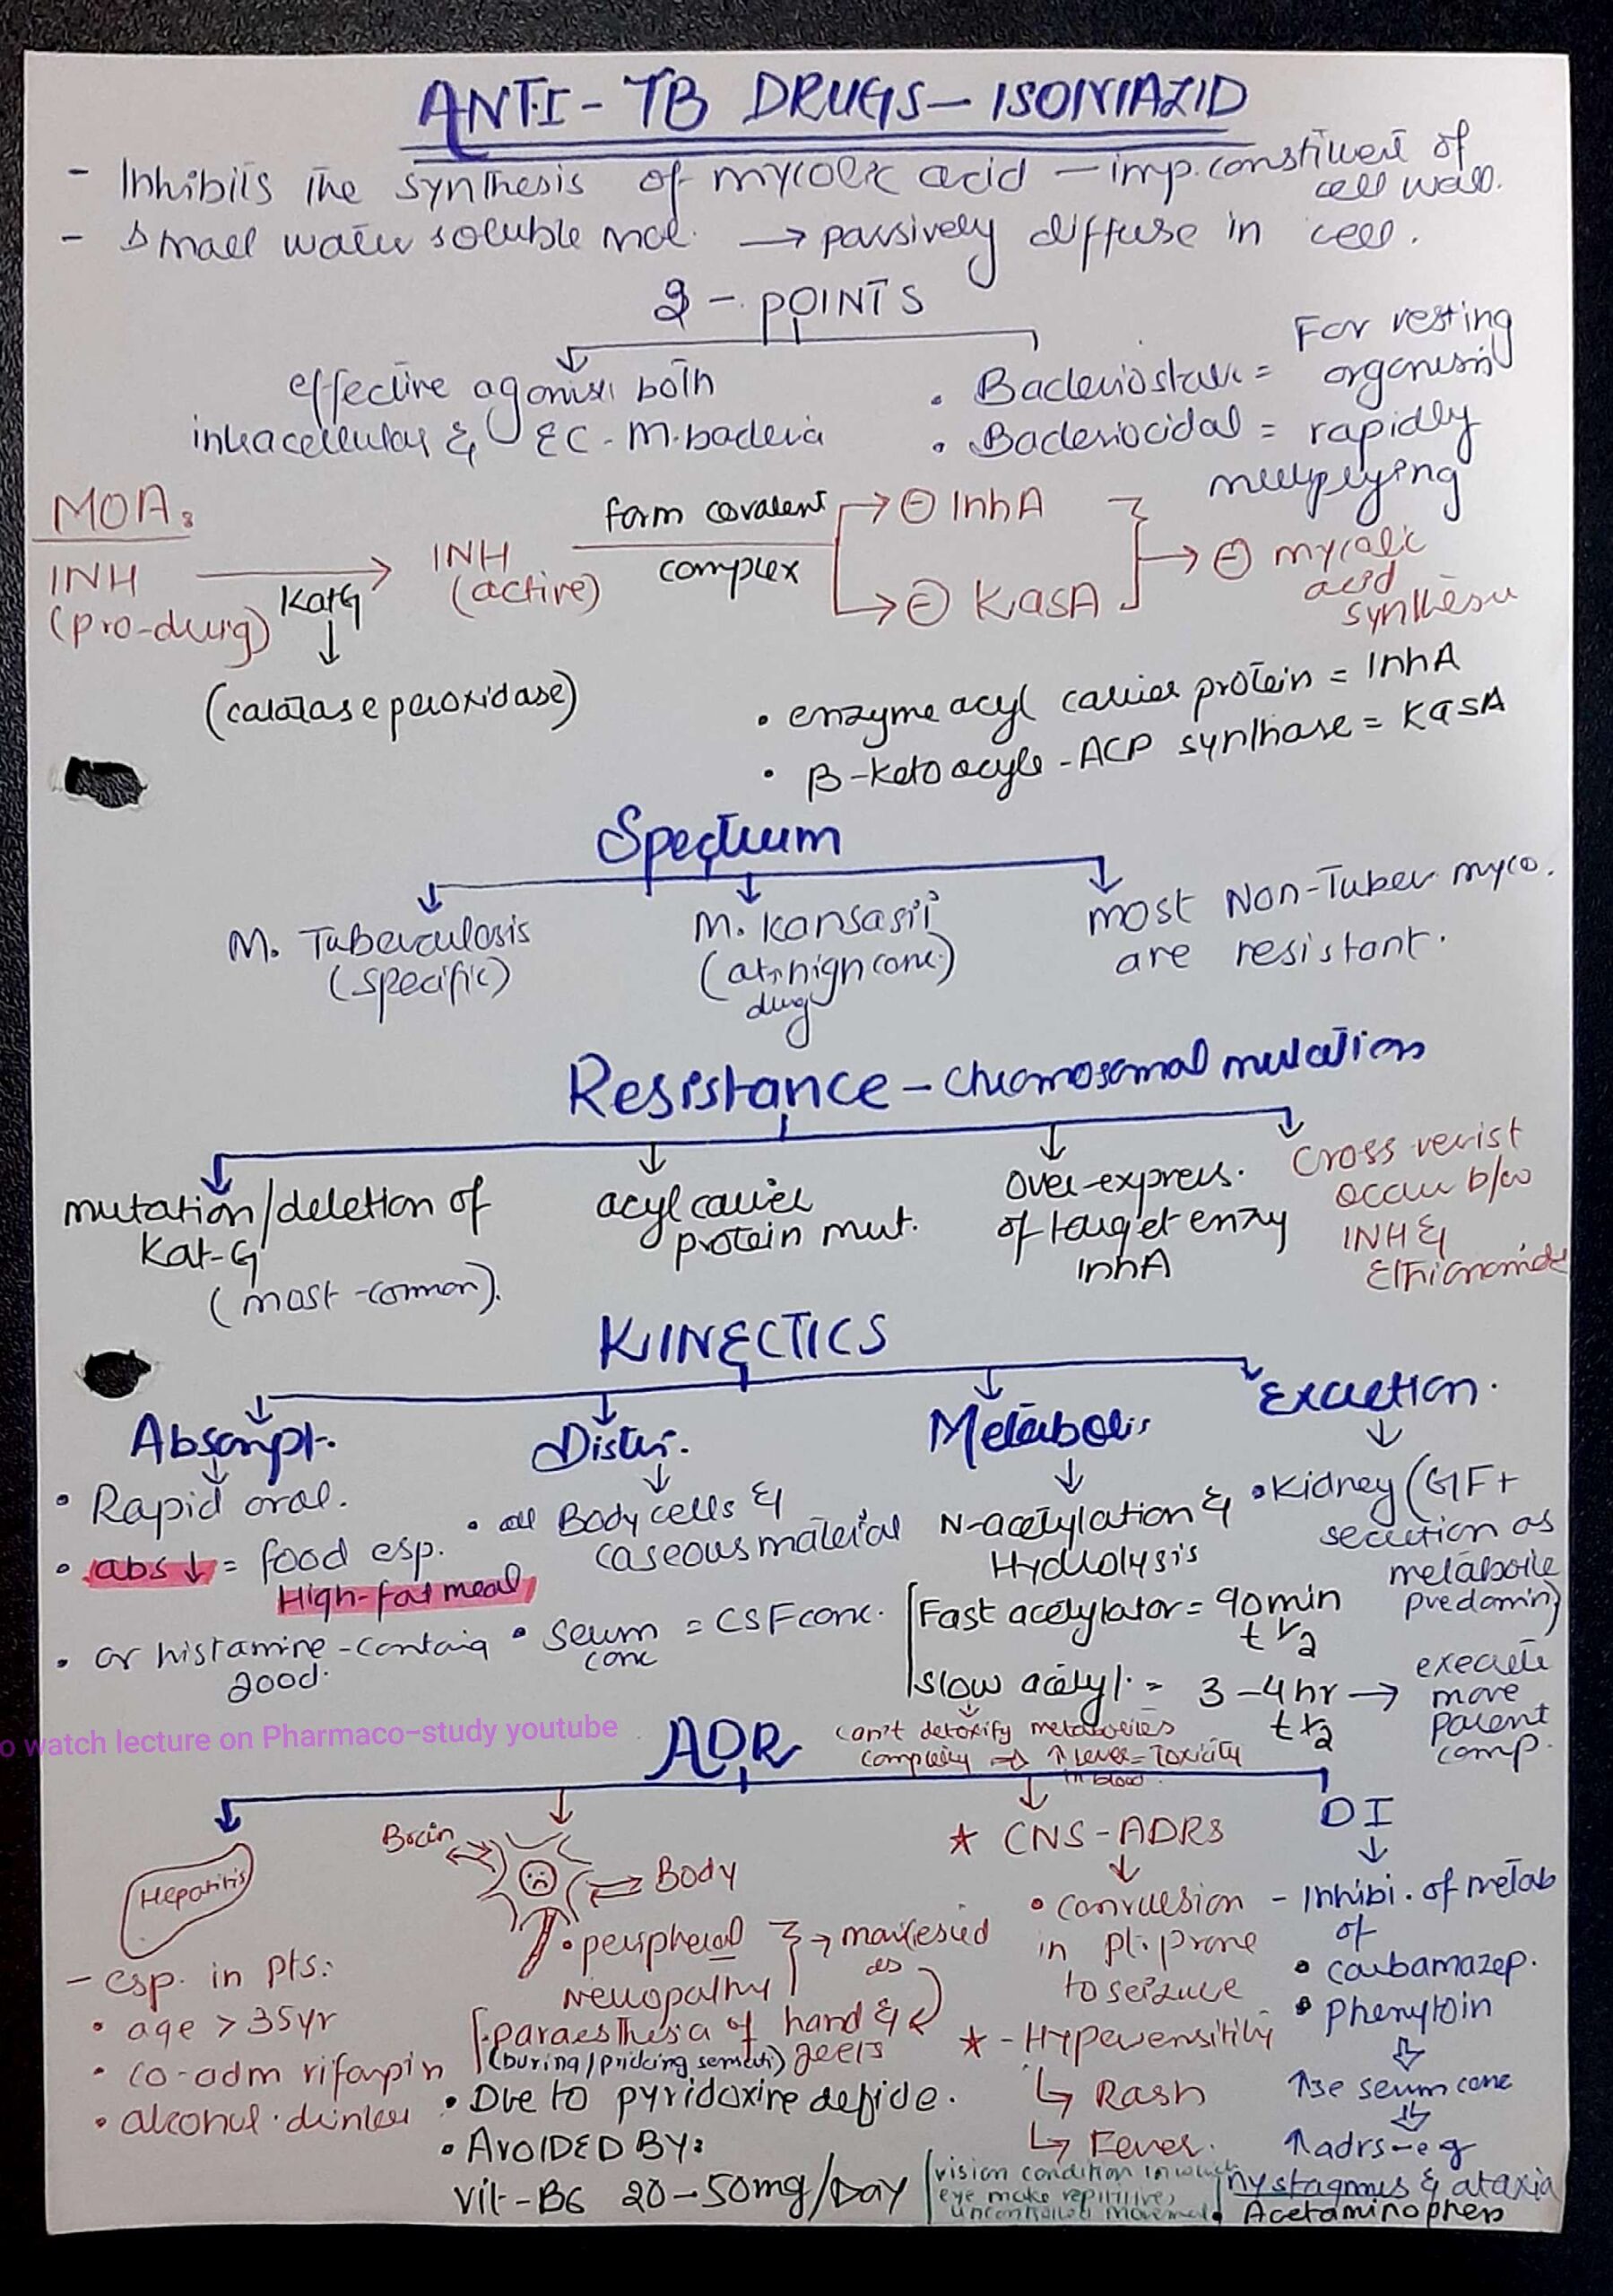 ANTI - TB DRUGS - ISONIAZID
- Inhibits the synthesis of mycolic acid - imp. constituent of
cell wall.
- Small water soluble mol. → passively diffuse in cell.
2 - POINTS
effective against both
intracellular & EC - M. bacteria
• Bacteriostatic = For resting
organism
• Bacteriocidal = rapidly
multiplying
MOA:
INH
(pro-drug)
KatG
↓
(catalase peroxidase)
INH
(active)
form covalent
complex
→ ⊖ InhA
→ ⊖ KasA
→ ⊖ mycolic
acid
synthesis
• enzyme acyl carrier protein = InhA
• β-keto acyle-ACP synthase = KasA
Spectrum
M. Tuberculosis
(specific)
M. kansasii
(at high conc.)
drug
most Non-Tuber myco.
are resistant.
Resistance - chromosomal mutation
mutation/deletion of
Kat-G
(most-common).
acyl carrier
protein mut.
Over-express.
of target enzy
InhA
Cross resist
occur b/w
INH &
Ethionamide
KINECTICS
Absorpt.
• Rapid oral.
• abs ↓ = food esp.
High-fat meal
• or histamine-containg
food.
Distri.
• all Body cells &
caseous material
• Serum = CSF conc.
conc
Metabolis
N-acetylation &
Hydrolysis
Fast acetylator = 90min
t ½
Slow acetyl. = 3-4hr →
t ½
can't detoxify metabolites
completly ⇒ ↑ level = Toxicity
in blood
Excretion.
• Kidney (GF+
secretion as
metabolite
predomin)
execrete
more
parent
comp.
o watch lecture on Pharmaco-study youtube
ADR
Hepatitis
- esp. in pts:
• age > 35yr
• co-adm rifampin
• alcohol drinker
Brain
Body
• peripheral
neuropathy
→ manifested
as
• paraesthesia of hand &
(buring/pricking sensati) feets
• Due to pyridoxine defide.
• AVOIDED BY:
Vit-B6 20-50mg/Day
★ CNS-ADRS
• convulsion
in pt. prone
to seizure
★ - Hypersensitity
↳ Rash
↳ Fever.
DI
- Inhibi. of metab
of
• carbamazep.
• Phenytoin
↑se serum conc
↑adrs-eg
nystagmus & ataxia
vision condition in which
eye make repititive,
uncontrolled movement
• Acetaminophen